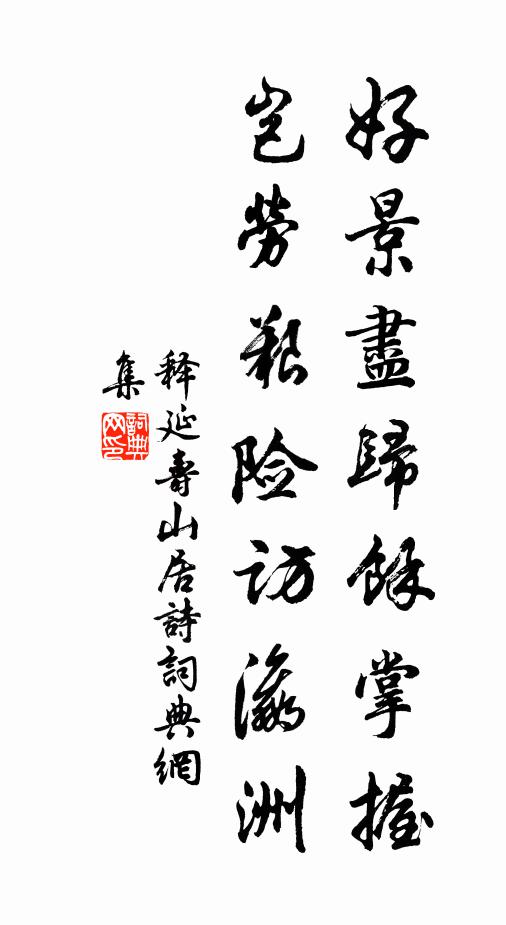 好景盡歸餘掌握
豈勞艱险访瀛洲
释延壽山居詩詞典網
集
詞典网印